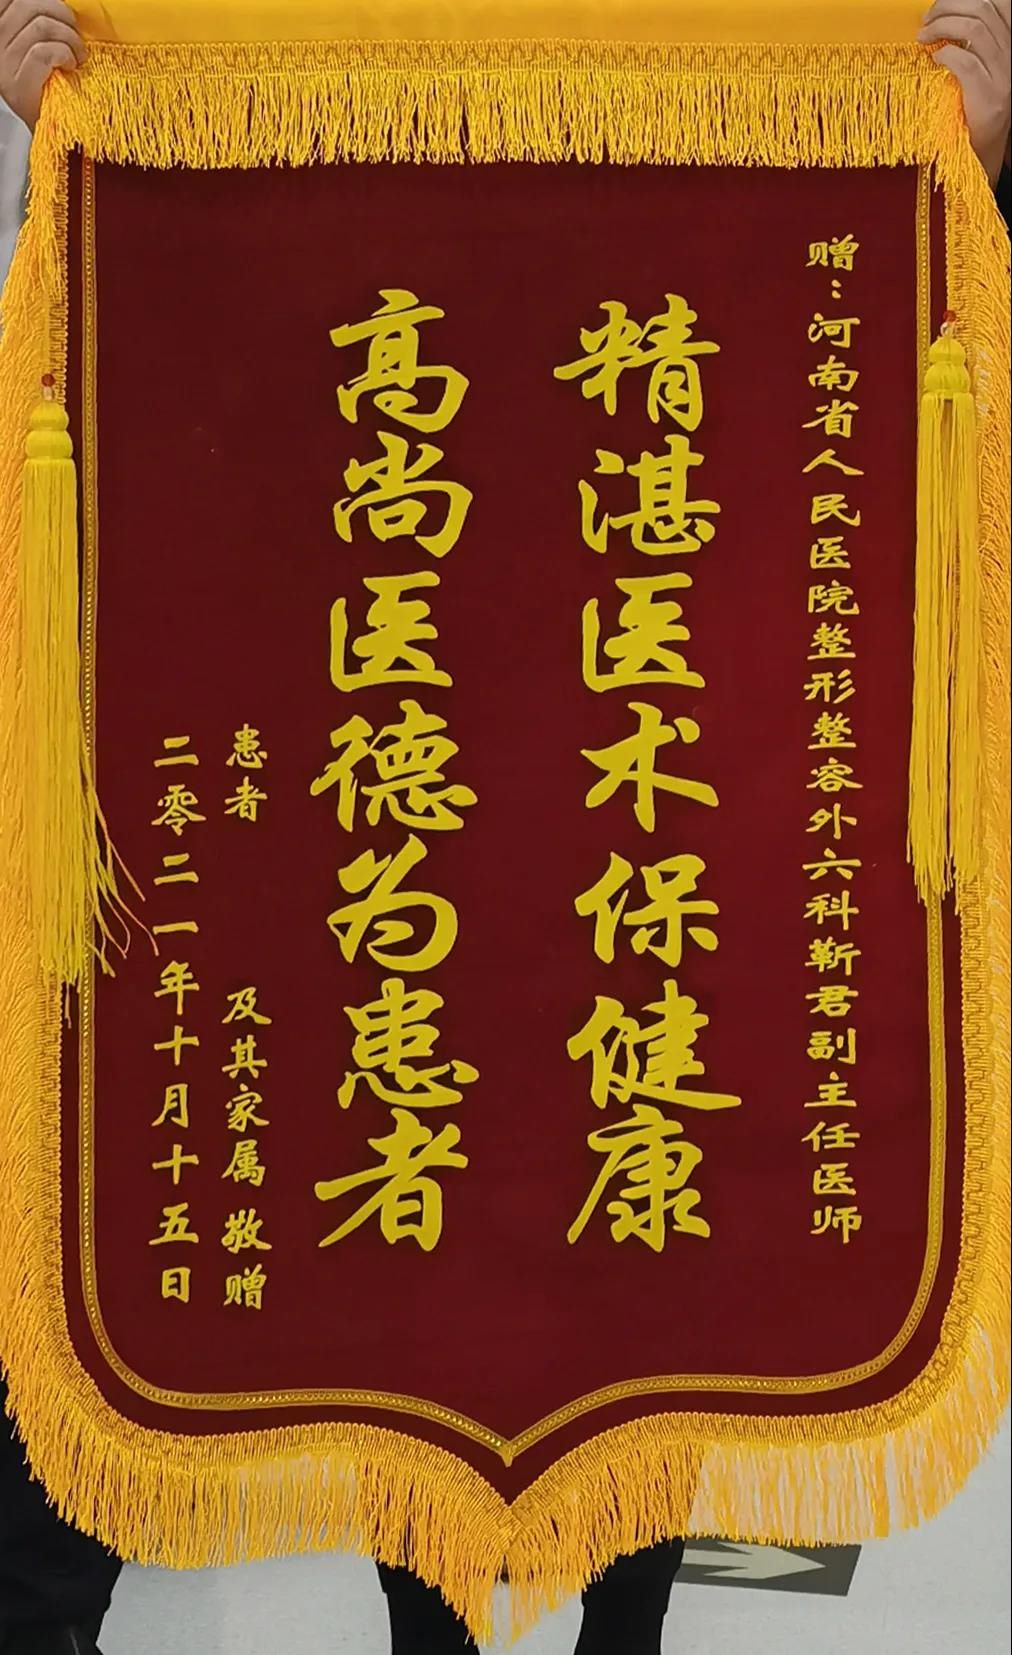 赠：河南省人民医院整形整容外六科靳君副主任医师
精湛医术保健康
高尚医德为患者
患者 及其家属 敬赠
二零二一年十月十五日